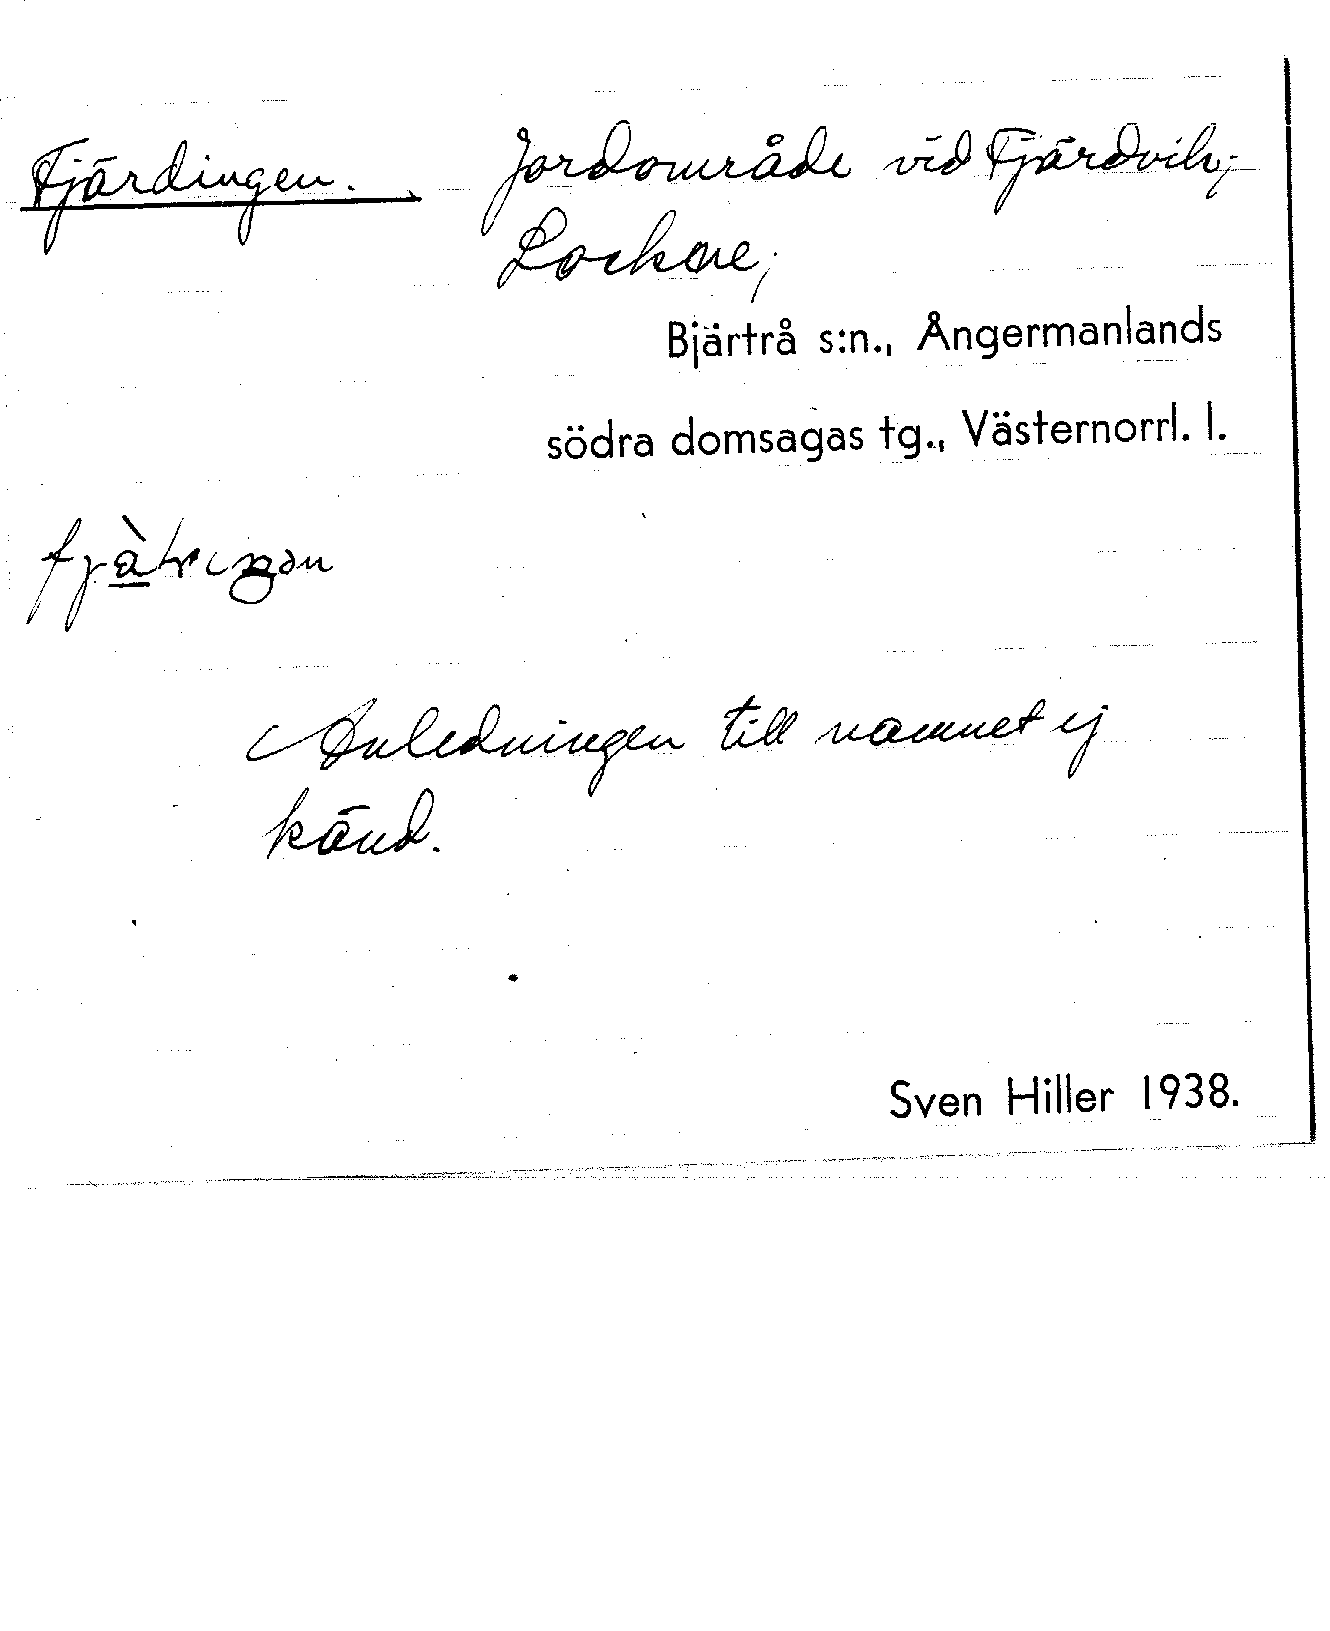 Fjärdingen. Jordområde vid Fjärdvik,
Lockne,
Bjärtrå s:n., Ångermanlands
södra domsagas tg., Västernorrl. l.
Anledningen till namnet ej
känd.
Sven Hiller 1938.